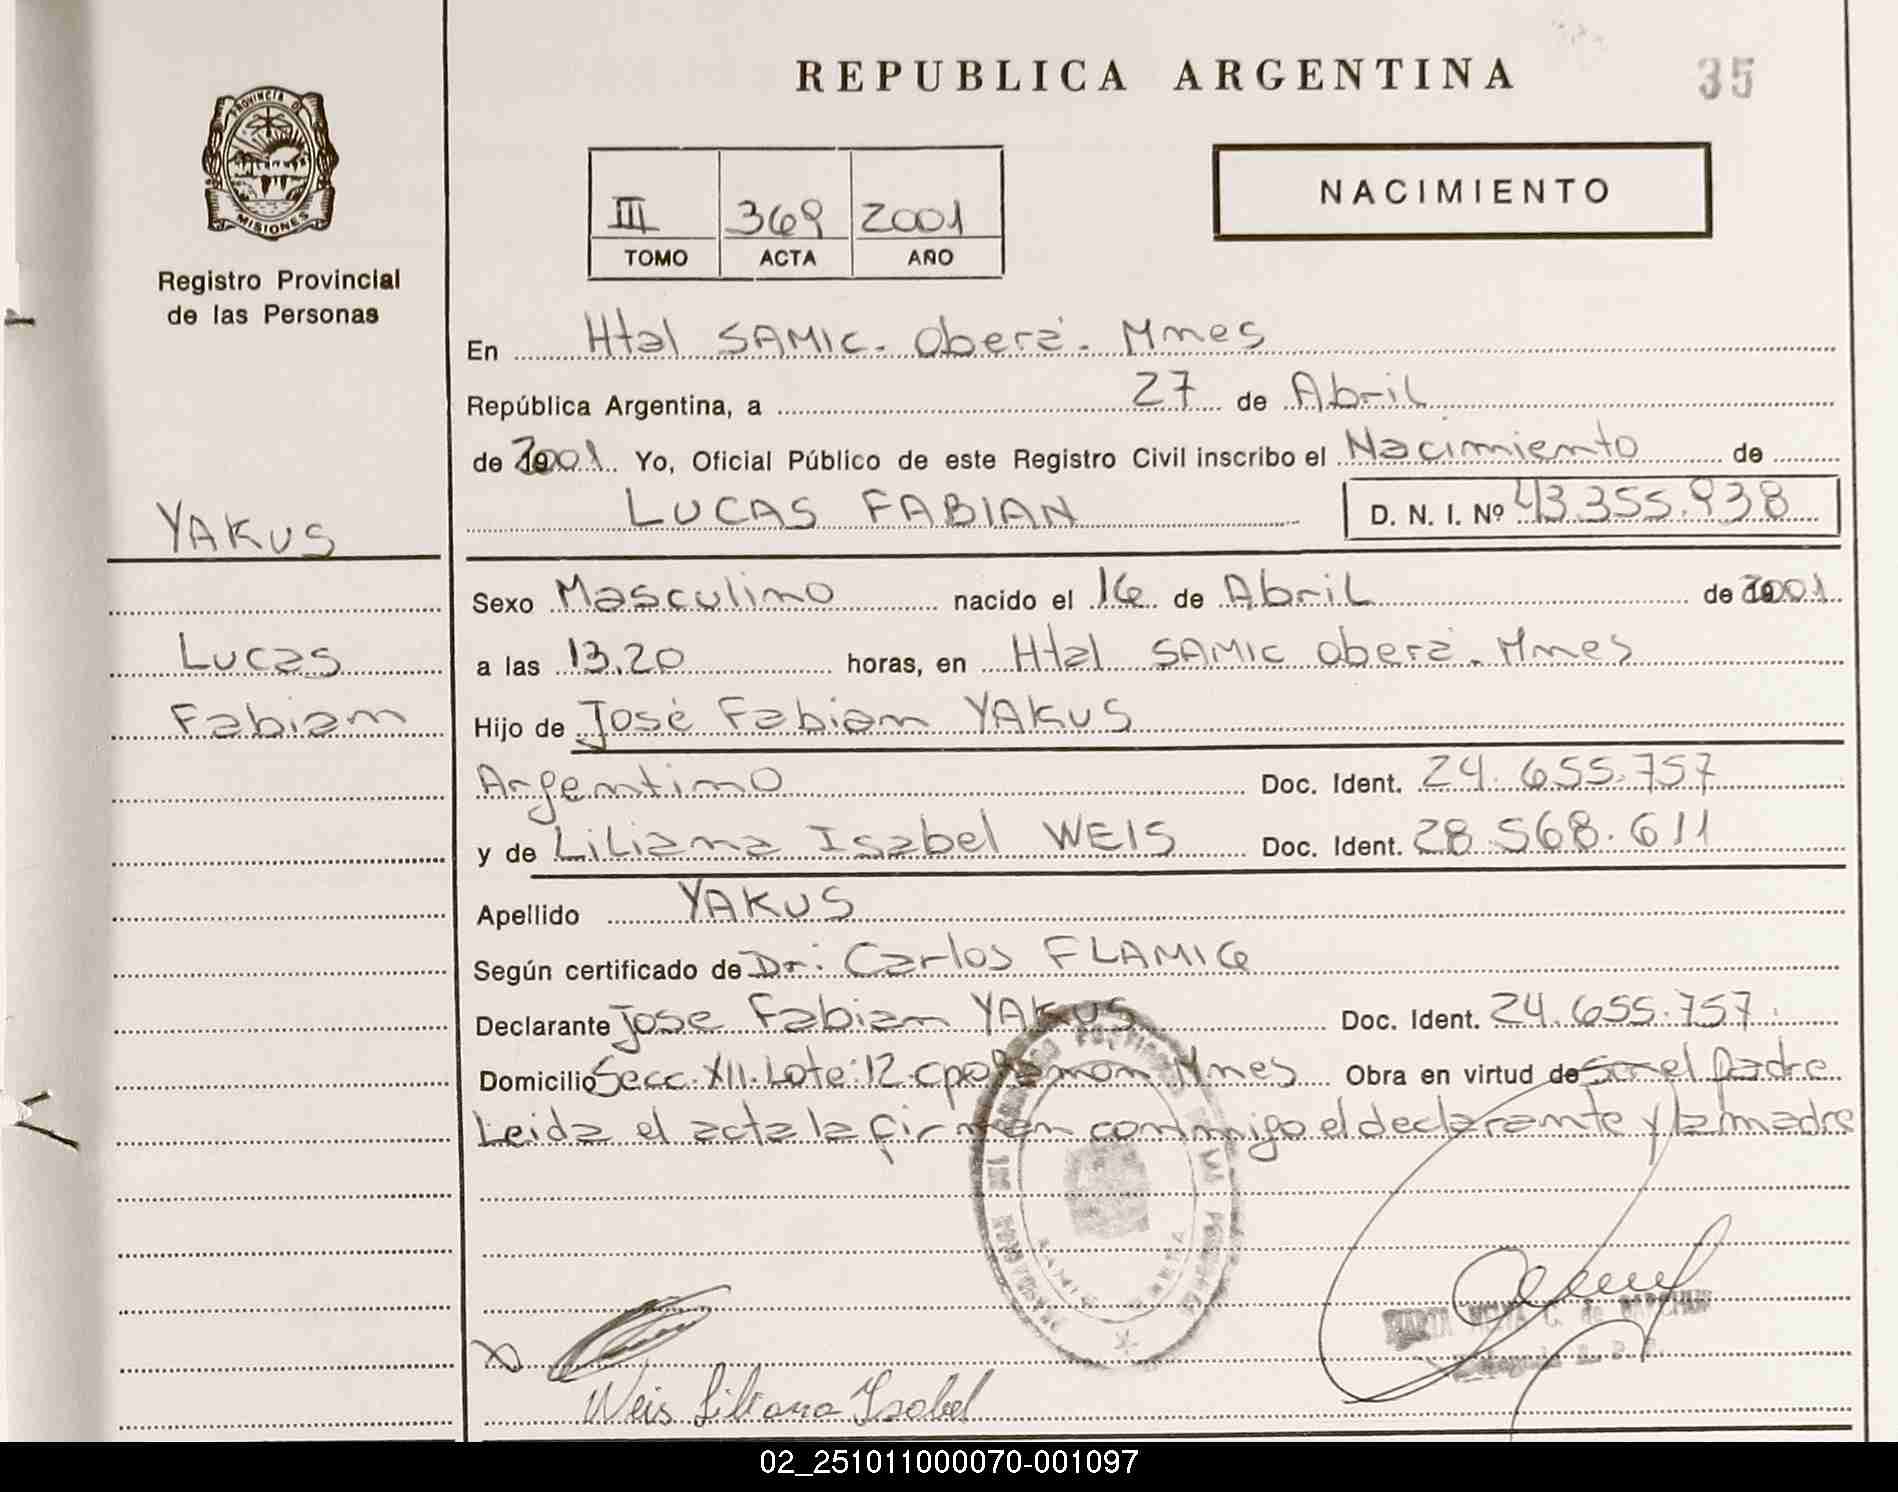 REPUBLICA ARGENTINA
35
PROVINCIA DE
MISIONES
Registro Provincial
de las Personas
III 369 2001
TOMO ACTA AÑO
NACIMIENTO
En Htal SAMIC. Oberá. Mnes
República Argentina, a 27 de Abril
de 2001 Yo, Oficial Público de este Registro Civil inscribo el Nacimiento de
LUCAS FABIAN D. N. I. Nº 43.355.938
YAKUS
Lucas
Fabian
Sexo Masculino nacido el 16 de Abril de 2001
a las 13.20 horas, en Htal SAMIC Oberá. Mnes
Hijo de José Fabian YAKUS
Argentino Doc. Ident. 24.655.757
y de Liliana Isabel WEIS Doc. Ident. 28.568.611
Apellido YAKUS
Según certificado de Dr: Carlos FLAMIG
Declarante Jose Fabian YAKUS Doc. Ident. 24.655.757.
Domicilio Secc. XII. Lote: 12. cpo Ramon Mnes Obra en virtud de ser el padre
Leida el acta la firman conmigo el declarante y la madre
Weis Liliana Isabel
02_251011000070-001097